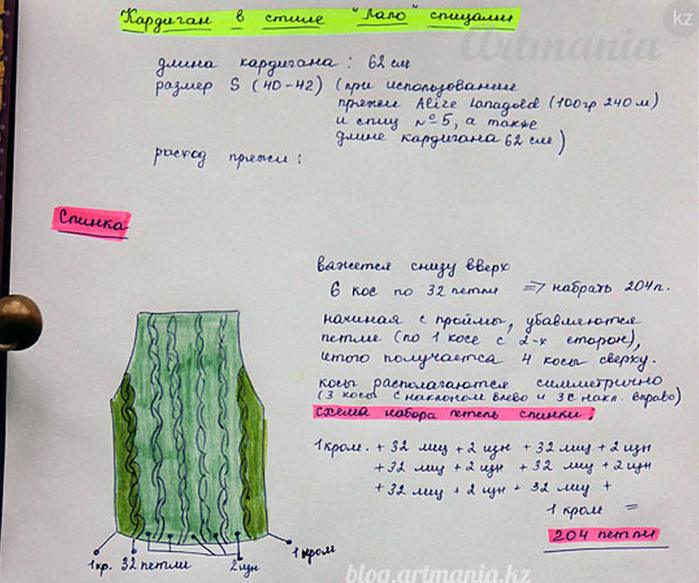 Кардиган в стиле "Лало" спицами
kz
Artmania
длина кардигана : 62 см
размер S (40-42) (при использовании
пряжи Alize Lanagold (100гр 240 м)
и спиц №5, а также
длине кардигана 62 см)
расход пряжи :
Спинка
вяжется снизу вверх
6 кос по 32 петли => набрать 204 п.
начиная с проймы, убавляются
петли (по 1 косе с 2-х сторон),
итого получается 4 косы сверху.
косы располагаются симметрично
(3 косы с наклоном влево и 3 с накл. вправо)
схема набора петель спинки.
1 кром. + 32 лиц + 2 изн + 32 лиц + 2 изн
+ 32 лиц + 2 изн + 32 лиц + 2 изн
+ 32 лиц + 2 изн + 32 лиц +
1 кром =
204 петли
1 кр. 32 петли 2 изн 1 кром
blog.artmania.kz